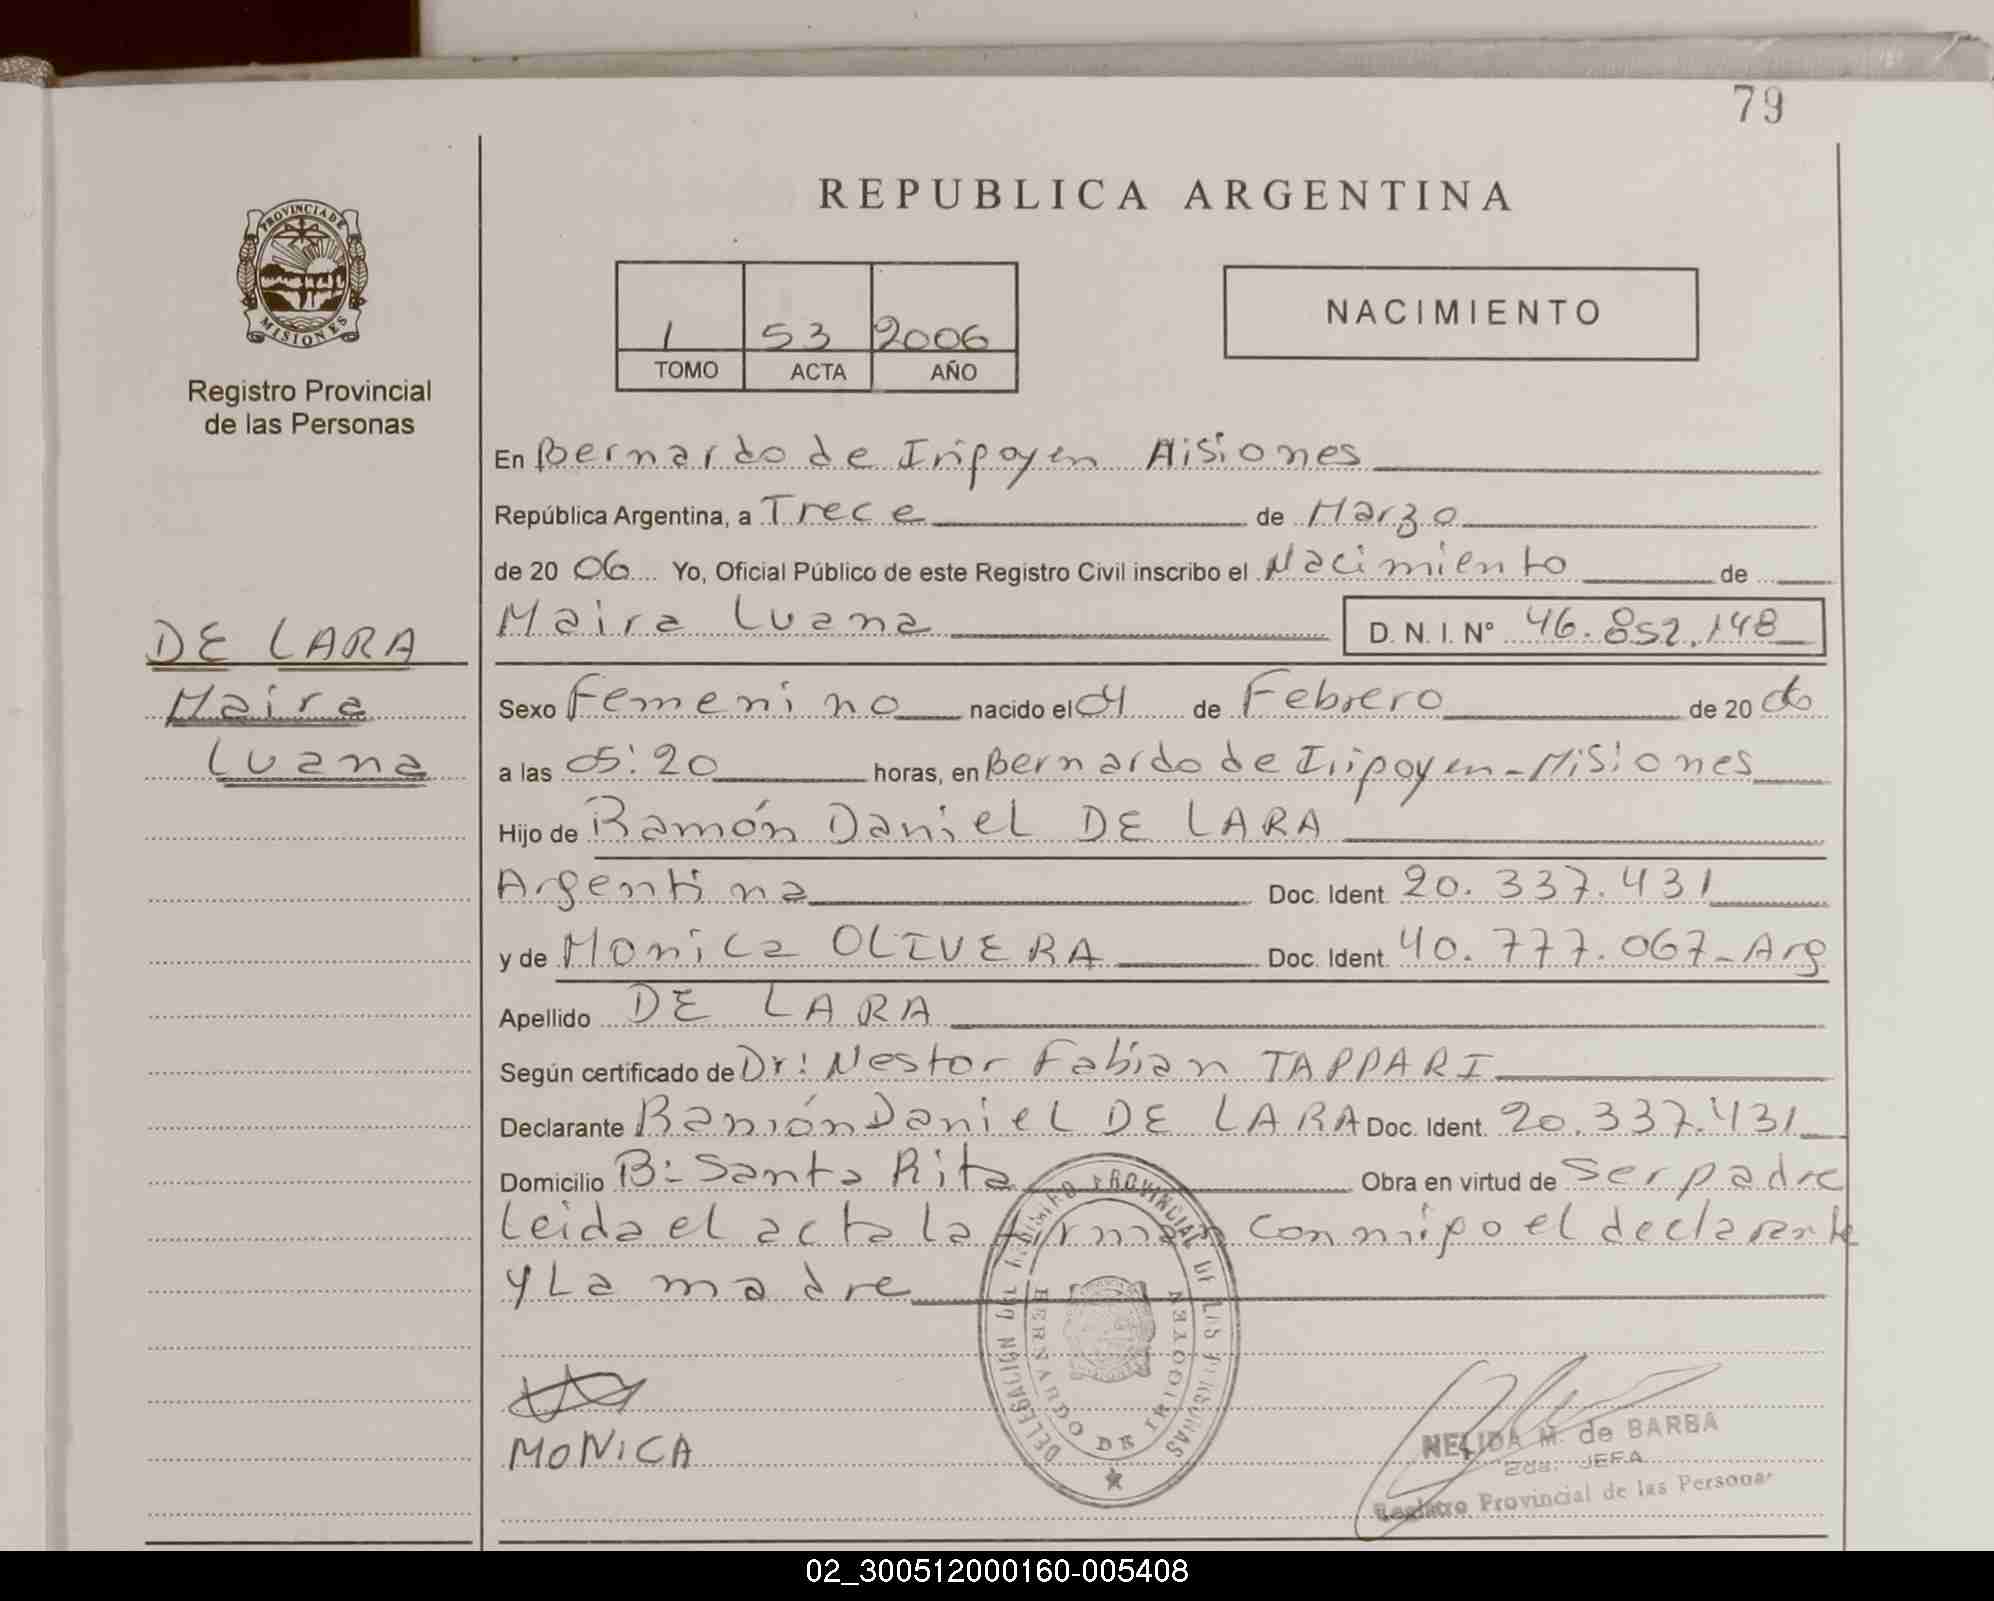 79
PROVINCIA DE
MISIONES
Registro Provincial
de las Personas
DE LARA
Maira
Luana
REPUBLICA ARGENTINA
1 53 2006
TOMO ACTA AÑO
NACIMIENTO
En Bernardo de Iripoyen Misiones
República Argentina, a Trece de Marzo
de 20 06 Yo, Oficial Público de este Registro Civil inscribo el Nacimiento de
Maira Luana D. N. I. N° 46.852.148
Sexo Femenino nacido el 04 de Febrero de 20 06
a las 05:20 horas, en Bernardo de Iripoyen - Misiones
Hijo de Ramón Daniel DE LARA
Argentina Doc. Ident. 20.337.431
y de Monica OLIVERA Doc. Ident. 40.777.067 - Arg
Apellido DE LARA
Según certificado de Dr: Nestor Fabian TAPPARI
Declarante Ramón Daniel DE LARA Doc. Ident. 20.337.431
Domicilio B: Santa Rita Obra en virtud de ser padre
Leida el acta la firman conmipo el declarante
y La madre
DELEGACION DEL REGISTRO PROVINCIAL DE LAS PERSONAS
BERNARDO DE IRIGOYEN
MONICA
NELIDA M. de BARBA
2da. JEFA
Registro Provincial de las Personas
02_300512000160-005408